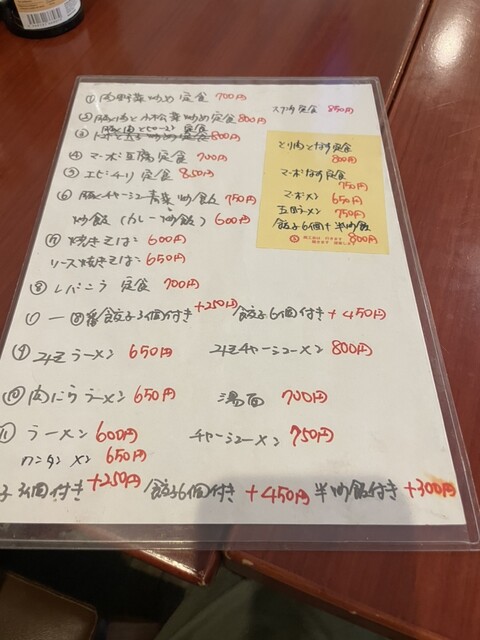 ① 肉野菜炒め 定食 700円
スブタ定食 850円
② 豚肉と小松菜炒め定食 800円
③ 定食 800円
④ マーボ豆腐定食 700円
⑤ エビチリ 定食 850円
⑥ 豚チャーシュー青菜炒飯 750円
炒飯 (カレー炒飯) 600円
⑦ 焼きそば 600円
ソース焼きそば 650円
⑧ レバニラ 定食 700円
とり肉となす定食
800円
マーボなす定食
750円
マーボメン 650円
五目ラーメン 750円
餃子6個付 半炒飯
800円
①一⑧番餃子3個付き +250円
餃子6個付き +450円
⑨ ラーメン 650円
チャーシューメン 800円
⑩ 肉にらラーメン 650円
湯面 700円
⑪ ラーメン 600円
チャーシューメン 750円
ワンタンメン 650円
子3個付き +250円
餃子6個付き +450円
半炒飯付き +300円